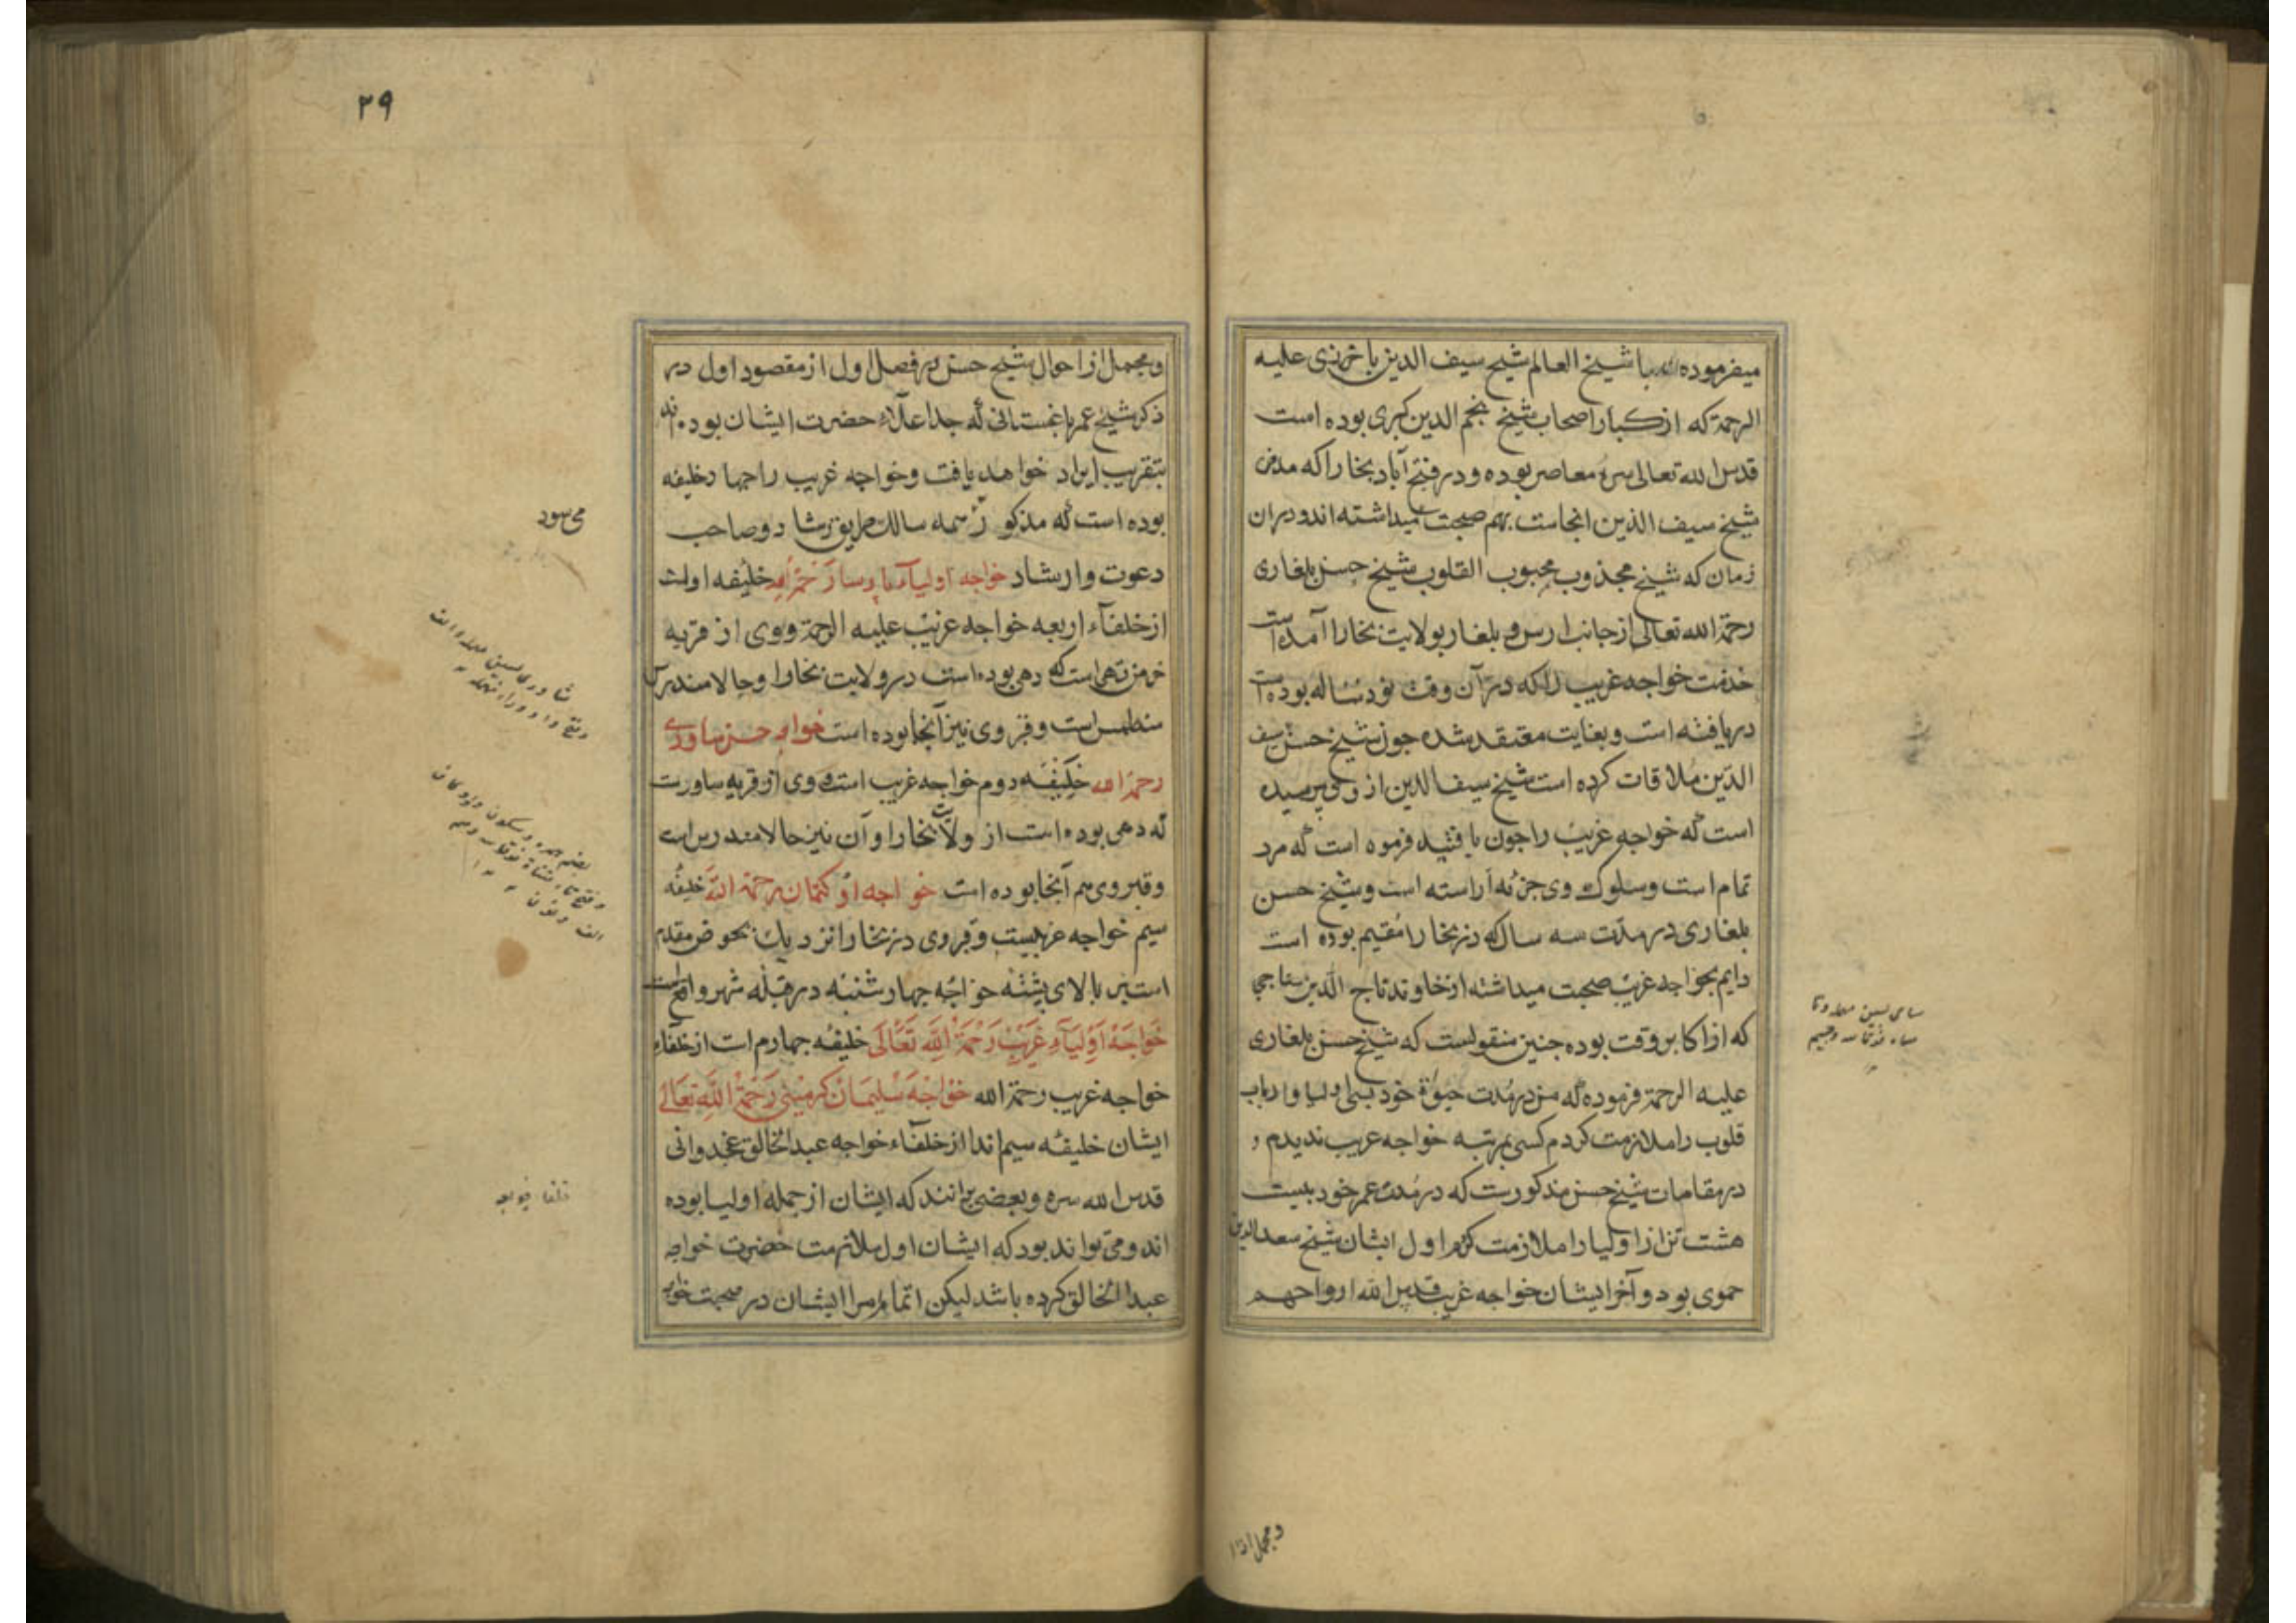 میفرموده اند با شیخ العالم شیخ سیف الدین باخرزی علیه
الرحمة که از کبار اصحاب شیخ نجم الدین کبری بوده است
قدس الله تعالی سره معاصر بوده و در فتح آباد بخارا که مدفن
شیخ سیف الدین انجاست بهم صحبت میداشته اند و دران
زمان که شیخ مجذوب محبوب القلوب شیخ حسن بلغاری
رحمة الله تعالی از جانب ارس و بلغار بولایت بخارا آمده است
خدمت خواجه غریب را که در آن وقت نود ساله بوده است
دریافته است و بغایت معتقد شده جون شیخ حسن شیخ سیف
الدین ملاقات کرده است شیخ سیف الدین از وی پرسیده
است که خواجه غریب را جون یافتید فرموه است که مرد
تمام است و سلوک وی جزبه آراسته است و شیخ حسن
بلغاری در مدت سه سال که در بخارا مقیم بوده است
دایم بخواجه غریب صحبت میداشته از خاوند تاج الدین ستاجی
که از اکابر وقت بوده جنین منقولست که شیخ حسن بلغاری
علیه الرحمة فرموده که من در مدت حیوة خود بسی اولیا و ارباب
قلوب را ملازمت کردم کسی بمرتبه خواجه غریب ندیدم و
در مقامات شیخ حسن مذکورست که در مدت عمر خود بیست
هشت تن از اولیا را ملازمت کردم اول ایشان شیخ سعد الدین
حموی بود و آخر ایشان خواجه غریب قدس الله ارواحهم
و مجمل از ا
۲۹
و مجمل از احوال شیخ حسن در فصل اول از مقصود اول در
ذکر شیخ عمر باغستانی که جد اعلاء حضرت ایشان بوده اند
بتقریب ایراد خواهد یافت و خواجه غریب را جهار خلیفه
بوده است که مذکور سالک طریق رشاد و صاحب
دعوت و ارشاد خواجه اولیاء پارسا رحمة الله خلیفه اولت
از خلفاء اربعه خواجه غریب علیه الرحمة و وی از قریه
خرمن تهی است که دهی بوده است در ولایت بخارا و حالا مندرس
منطمس است و قبر وی نیز آنجا بوده است خواجه حسن ساوری
رحمة الله خلیفه دوم خواجه غریب است و وی از قریه ساورست
که دهی بوده است از ولایت بخارا و آن نیز حالا مندرس است
و قبر وی هم آنجا بوده است خواجه اوکتمان رحمة الله خلیفه
سیم خواجه غریبست و قبر وی در بخارا نزدیک بحوض مقدم
است بر بالای پشته خواجه جهارشنبه در قبله شهر واقع است
خواجه اولیاء غریب رحمة الله تعالی خلیفه جهارم است از خلفاء
خواجه غریب رحمة الله خواجه سلیمان کرمینی رحمة الله تعالی
ایشان خلیفه سیم اند از خلفاء خواجه عبد الخالق غجدوانی
قدس الله سره و بعضی برانند که ایشان از جمله اولیا بوده
اند و می تواند بود که ایشان اول ملازمت حضرت خواجه
عبد الخالق کرده باشد لیکن اتمام امر ایشان در صحبت خواجه